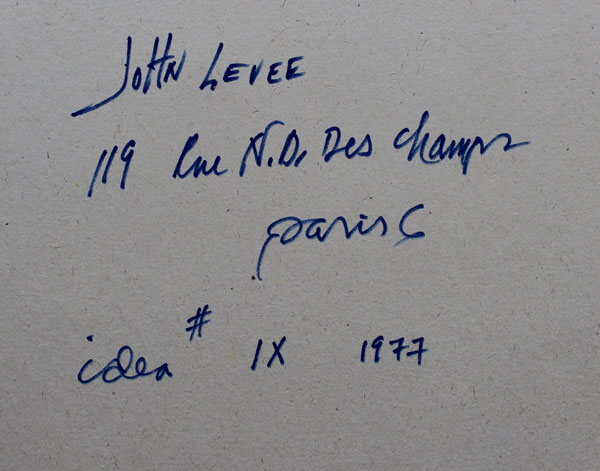 JOHN LEVEE
119 Rue N.D. Des Champs
Paris 6
idea # IX 1977